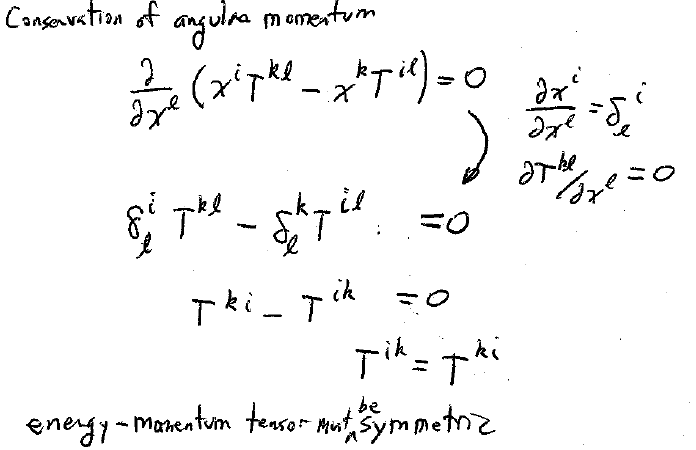 Conservation of angular momentum
∂/∂x^l (x^i T^{kl} − x^k T^{il}) = 0
∂x^i/∂x^l = δ_l^i
∂T^{kl}/∂x^l = 0
δ_l^i T^{kl} − δ_l^k T^{il} . = 0
T^{ki} − T^{ik} = 0
T^{ik} = T^{ki}
energy-momentum tensor must be symmetric